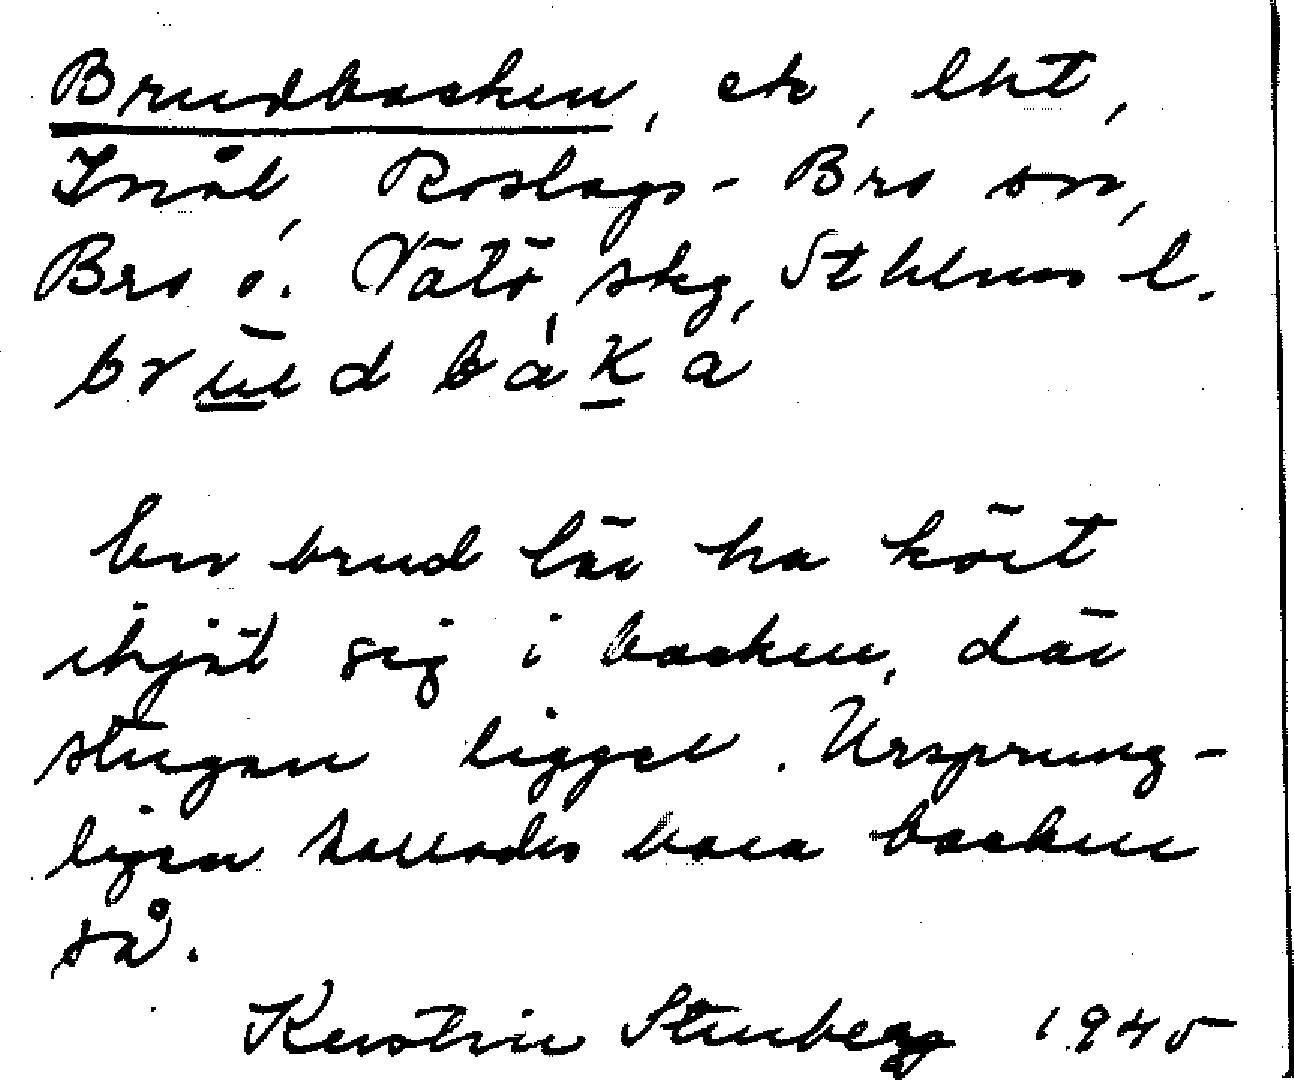 Brudbacken, ek, lht,
Roslags-Bro sn,
Bro o. Vätö skg, Sthlms l.
En brud lär ha kört
ihjäl sig i backen, där
stugan ligger. Ursprung-
ligen kallades bara backen
så.
Kerstin Stenberg 1945